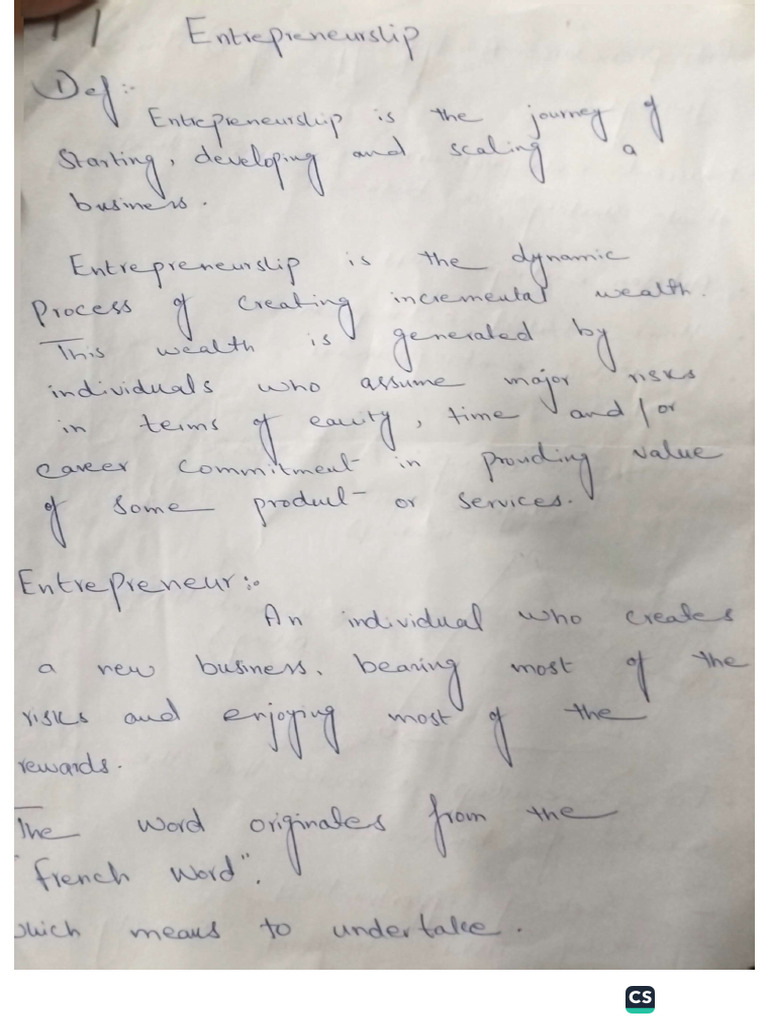 Entrepreneurship
Def:-
Entrepreneurship is the journey of
starting, developing and scaling a
business.
Entrepreneurship is the dynamic
Process of creating incremental wealth.
This wealth is generated by
individuals who assume major risks
in terms of equity, time and/or
career commitment in providing value
of some product or services.
Entrepreneur:-
An individual who creates
a new business, bearing most of the
risks and enjoying most of the
rewards.
The word originates from the
"French word".
which means to undertake.
CS